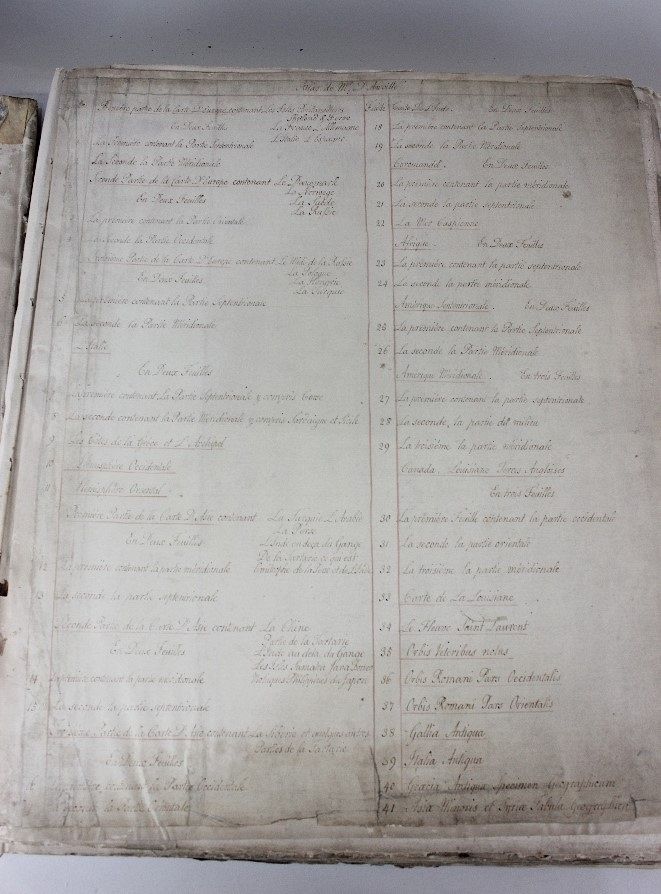 Atlas de Mr. D'Anville
Première partie de la Carte D'Europe contenant Les Isles Britanniques
En Deux Feuilles La France L'Allemagne
La Première contenant la Partie Septentrionale L'Italie L'Espagne
La Seconde la Partie Méridionale
Seconde Partie de la Carte D'Europe contenant Le Danemark
La Norvege
En Deux Feuilles La Suède
La Russie
La première contenant la Partie Orientale
La Seconde la Partie Occidentale
Troisième Partie de la Carte D'Europe contenant Le Midi de la Russie
La Pologne
En Deux Feuilles La Hongrie
La Turquie
5 La première contenant la Partie Septentrionale
6 La Seconde la Partie Méridionale
L'Italie
En Deux Feuilles
La première contenant La Partie Septentrionale y compris Corse
8 La seconde contenant la Partie Méridionale y compris Sardaigne et Sicile
9 Les Côtes de la Grèce et L'Archipel
10 Hémisphère Occidentale
11 Hémisphère Oriental
Première Partie de la Carte D'Asie contenant La Turquie L'Arabie
La Perse
En Deux Feuilles L'Inde en deça du Gange
De la Tartarie ce qui est
12 La première contenant la partie méridionale Limitrophe de la Perse et de L'Inde
13 La seconde la partie septentrionale
Seconde Partie de la Carte D'Asie contenant La Chine
Partie de la Tartarie
En Deux Feuilles L'Inde au delà du Gange
Les Isles Sumatra Java Borneo
14 La première contenant la partie méridionale Moluques Philippines du Japon
15 La seconde la partie septentrionale
Partie de la Carte D'Asie contenant La Sibérie et quelques autres
Parties de la Tartarie
En Deux Feuilles
La première contenant la Partie Occidentale
La seconde la Partie Orientale
En Deux Feuilles
18 La première contenant la Partie Septentrionale
19 La seconde la Partie Méridionale
Coromandel. En Deux Feuilles
20 La première contenant la partie méridionale
21 La seconde la partie septentrionale
22 La Mer Caspienne
Afrique. En Deux Feuilles
23 La première contenant la partie septentrionale
24 La seconde la partie méridionale
Amérique Septentrionale. En Deux Feuilles
25 La première contenant la Partie Septentrionale
26 La seconde la Partie Méridionale
Amérique Méridionale. En trois Feuilles
27 La première contenant la partie septentrionale
28 La seconde, la partie du milieu
29 La troisième la partie méridionale
Canada. Louisiane Terres Angloises
En trois Feuilles
30 La première Feuille contenant la partie occidentale
31 La seconde la partie orientale
32 La troisième la partie méridionale
33 Carte de La Louisiane
34 Le Fleuve Saint Laurent
35 Orbis Veteribus notus
36 Orbis Romani Pars Occidentalis
37 Orbis Romani Pars Orientalis
38 Gallia Antiqua
39 Italia Antiqua
40 Græcia Antiqua Specimen Geographicum
41 Asia Minoris et Syriæ Tabula Geographica